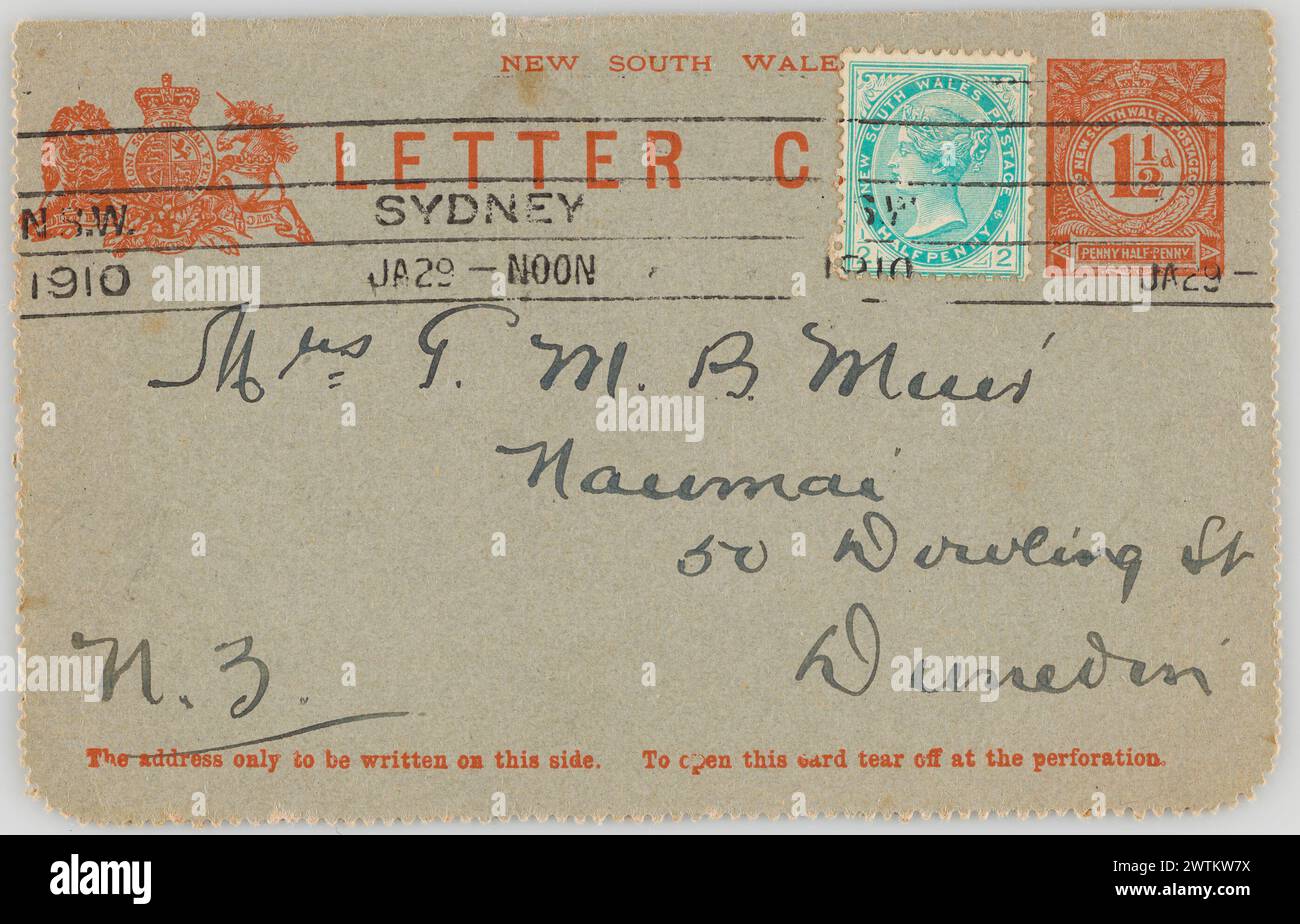 NEW SOUTH WALE
LETTER C
NEW SOUTH WALES POSTAGE
HALFPENNY
1/2
NEW SOUTH WALES POSTAGE
1 1/2 d
PENNY HALF-PENNY
N.S.W. SYDNEY SW
1910 JA29 - NOON 1910 JA29 -
Mrs G. M. B. Muir
Naumai
50 Dowling St
Dunedin
N. Z.
The address only to be written on this side. To open this card tear off at the perforation.
alamy
Image ID: 2WTKW7X
www.alamy.com